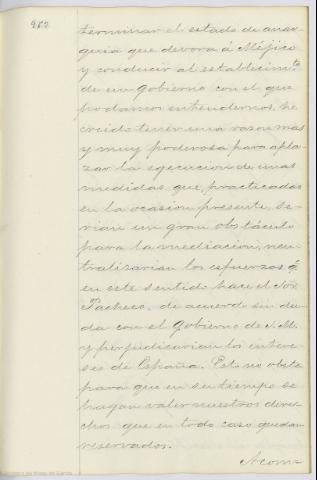 262
terminar el estado de anar-
quia que devora á Méjico
y conducir al establecimto
de un gobierno con el que
podamos entendernos, he
creido tener una razon mas
y muy poderosa para apla-
zar la egecucion de unas
medidas que, practicadas
en la ocasion presente, se-
rian un gran obstáculo
para la mediacion, neu-
tralizarian los esfuerzos q.
en este sentido hace el Sor.
Pacheco, de acuerdo sin du-
da con el Gobierno de S. M.
y perjudicarian los intere-
ses de España. Esto no obsta
para que en su tiempo se
hagan valer nuestros dere-
chos que en todo caso quedan
reservados.